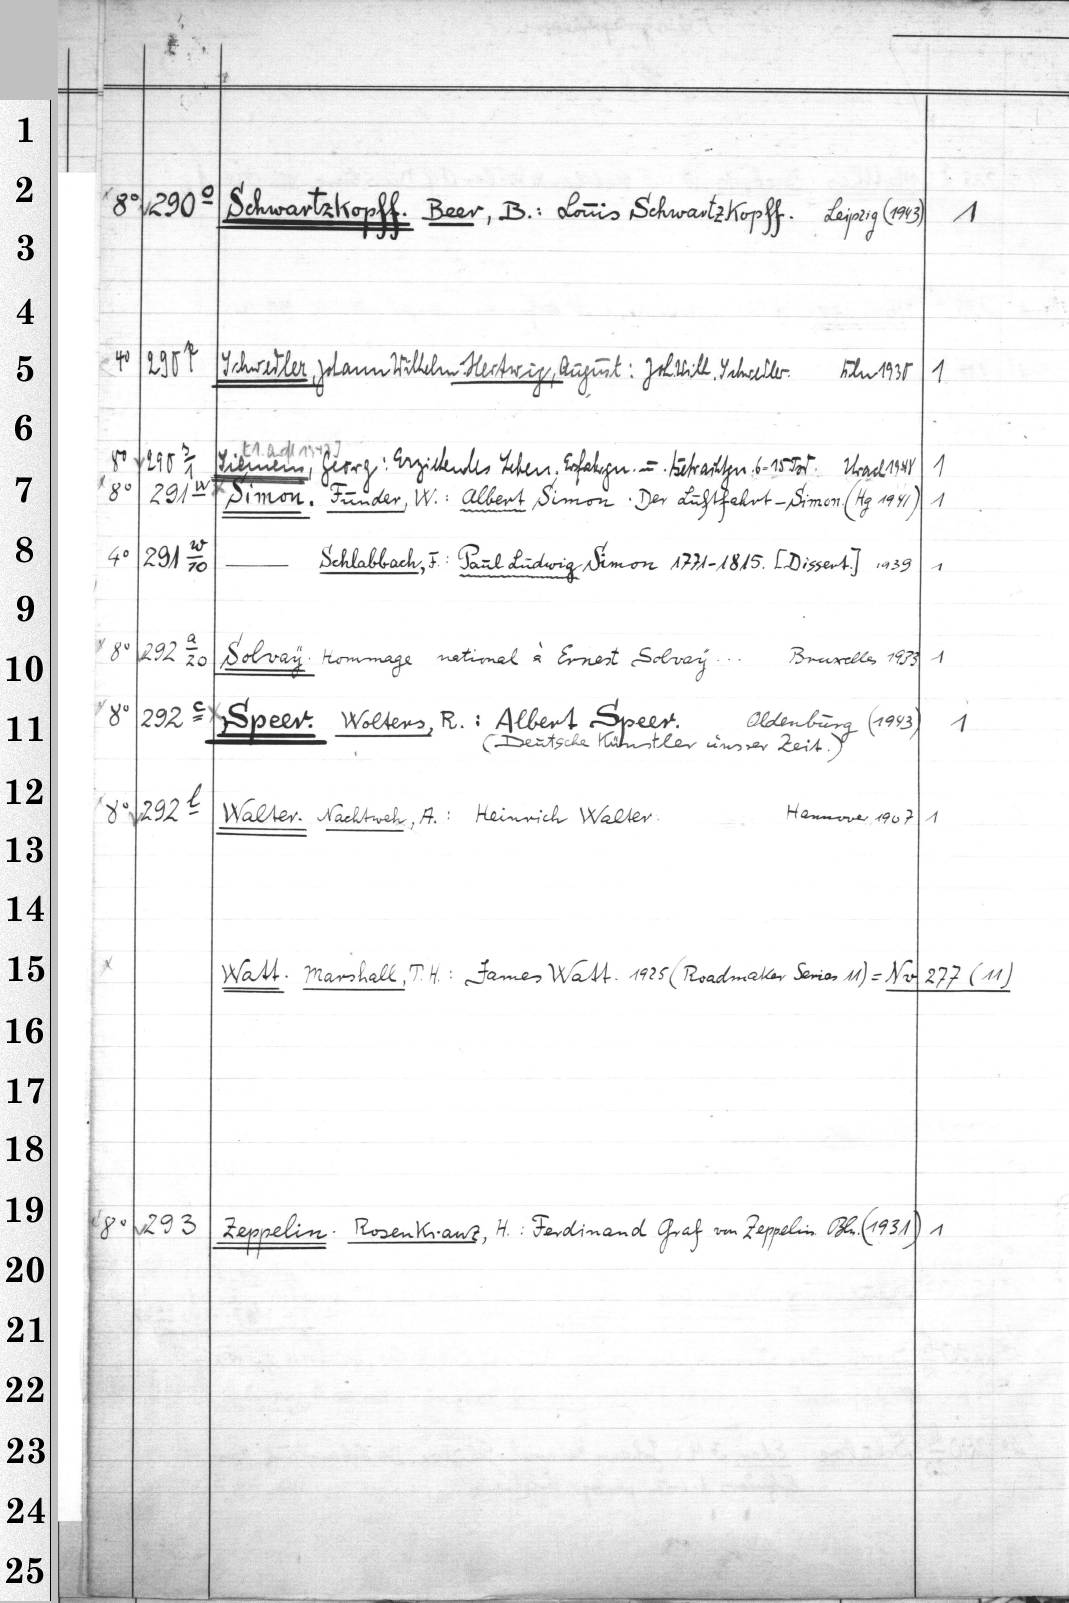 1
2
8° 290 o Schwartzkopff. Beer, B.: Louis Schwartzkopff. Leipzig (1943) 1
3
4
5
4° 290 Schwedler, Johann Wilhelm. Hertwig, August: Joh. Wilh. Schwedler. Bln 1930 1
6
8° 290 Siemens, Georg: Erziehendes Leben. Erfahrgn. u. Betrachtgn. 6-15 Urach 1948 1
7
8° 291 w Simon. Funder, W.: Albert Simon. Der Luftfahrt-Simon. (Hg 1941) 1
8
4° 291 w/10 Schlabbach, F.: Paul Ludwig Simon 1771-1815. [Dissert.] 1939 1
9
10
8° 292 a/20 Solvay. Hommage national à Ernest Solvay ... Bruxelles 1933 1
11
8° 292 c Speer. Wolters, R.: Albert Speer. Oldenburg (1943) 1
(Deutsche Künstler unsrer Zeit.)
12
8° 292 l Walter. Nachtweh, A.: Heinrich Walter. Hannover 1907 1
13
14
15
Watt. Marshall, T. H.: James Watt. 1925 (Roadmaker Series 11) = Nv 277 (11)
16
17
18
19
8° 293 Zeppelin. Rosenkranz, H.: Ferdinand Graf von Zeppelin. Bln. (1931) 1
20
21
22
23
24
25